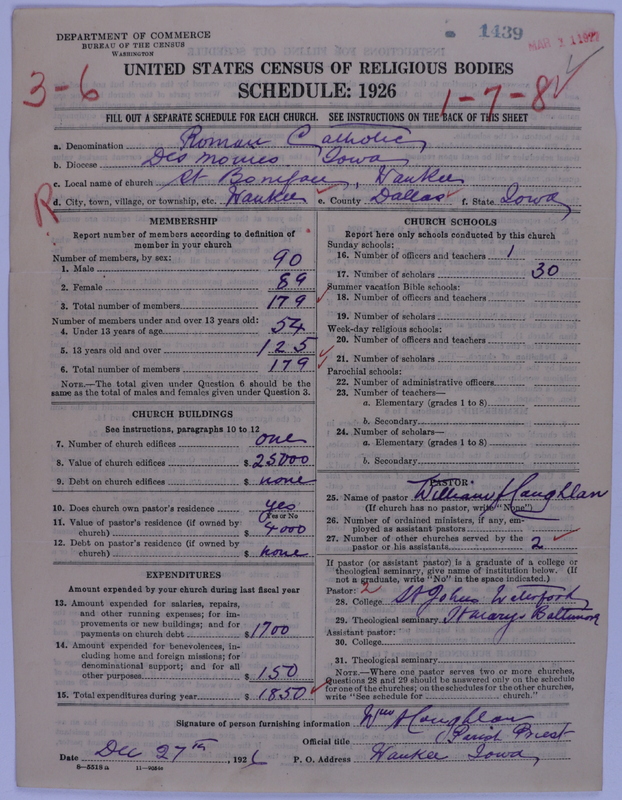 DEPARTMENT OF COMMERCE
BUREAU OF THE CENSUS
WASHINGTON
1439
MAR 1 1927
UNITED STATES CENSUS OF RELIGIOUS BODIES
SCHEDULE: 1926
3-6
1-7-8
FILL OUT A SEPARATE SCHEDULE FOR EACH CHURCH. SEE INSTRUCTIONS ON THE BACK OF THIS SHEET
a. Denomination Roman Catholic
b. Diocese Des Moines Iowa
c. Local name of church St Boniface, Waukee
d. City, town, village, or township, etc. Waukee e. County Dallas f. State Iowa
R
MEMBERSHIP
Report number of members according to definition of
member in your church
Number of members, by sex:
1. Male 90
2. Female 89
3. Total number of members 179
Number of members under and over 13 years old:
4. Under 13 years of age 54
5. 13 years old and over 125
6. Total number of members 179
NOTE.—The total given under Question 6 should be
same as the total of males and females given under Question 3.
CHURCH BUILDINGS
See instructions, paragraphs 10 to 12
7. Number of church edifices one
8. Value of church edifices $25000
9. Debt on church edifices $ none
10. Does church own pastor's residence yes
Yes or No
11. Value of pastor's residence (if owned by
church) $ 4000
12. Debt on pastor's residence (if owned by
church) $ none
EXPENDITURES
Amount expended by your church during last fiscal year
13. Amount expended for salaries, repairs,
and other running expenses; for im-
provements or new buildings; and for
payments on church debt $1700
14. Amount expended for benevolences, in-
cluding home and foreign missions; for
denominational support; and for all
other purposes $150
15. Total expenditures during year $1850
CHURCH SCHOOLS
Report here only schools conducted by this church
Sunday schools:
16. Number of officers and teachers 1
17. Number of scholars 30
Summer vacation Bible schools:
18. Number of officers and teachers
19. Number of scholars
Week-day religious schools:
20. Number of officers and teachers
21. Number of scholars
Parochial schools:
22. Number of administrative officers
23. Number of teachers—
a. Elementary (grades 1 to 8)
b. Secondary
24. Number of scholars—
a. Elementary (grades 1 to 8)
b. Secondary
PASTOR
25. Name of pastor William Coughlan
(If church has no pastor, write "None")
26. Number of ordained ministers, if any, em-
ployed as assistant pastors
27. Number of other churches served by the
pastor or his assistants 2
If pastor (or assistant pastor) is a graduate of a college or
theological seminary, give name of institution below. (If
not a graduate, write "No" in the space indicated.)
Pastor: 2
28. College St Johns Waterford
29. Theological seminary St Marys Baltimore
Assistant pastor:
30. College
31. Theological seminary
NOTE.—Where one pastor serves two or more churches,
Questions 28 and 29 should be answered only on the schedule
for one of the churches; on the schedules for the other churches,
write "See schedule for church."
Signature of person furnishing information Wm Coughlan
Official title Parish Priest
Date Dec 27th, 1926 P. O. Address Waukee Iowa
8—5518a 11—9054